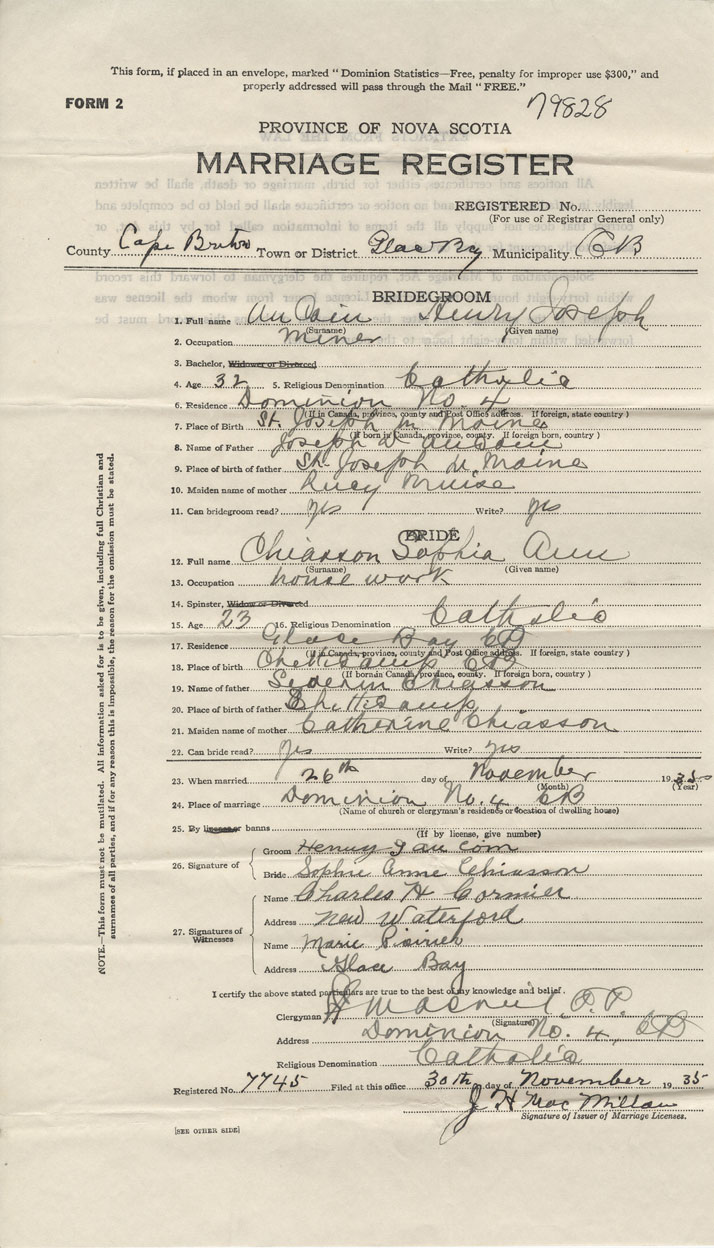 This form, if placed in an envelope, marked "Dominion Statistics—Free, penalty for improper use $300," and
properly addressed will pass through the Mail "FREE."
FORM 2
79828
PROVINCE OF NOVA SCOTIA
MARRIAGE REGISTER
REGISTERED No.
(For use of Registrar General only)
County Cape Breton Town or District Glace Bay Municipality CB
BRIDEGROOM
1. Full name Au Coin Henry Joseph
(Surname) (Given name)
2. Occupation miner
3. Bachelor, Widower or Divorced
4. Age 32 5. Religious Denomination Catholic
6. Residence Dominion No. 4
(If in Canada, province, county and Post Office address. If foreign, state country)
7. Place of Birth St. Joseph du Moine
(If born in Canada, province, county. If foreign born, country)
8. Name of Father Joseph D. Aucoin
9. Place of birth of father St. Joseph du Moine
10. Maiden name of mother Lucy Muise
11. Can bridegroom read? yes Write? yes
BRIDE
12. Full name Chiasson Sophia Ann
(Surname) (Given name)
13. Occupation house work
14. Spinster, Widow or Divorced
15. Age 23 16. Religious Denomination Catholic
17. Residence Glace Bay CB
(If in Canada, province, county and Post Office address. If foreign, state country)
18. Place of birth Chetticamp CB
(If born in Canada, province, county. If foreign born, country)
19. Name of father Chiasson
20. Place of birth of father Chetticamp
21. Maiden name of mother Catherine Chiasson
22. Can bride read? yes Write? yes
23. When married 26th day of November 1935
(Month) (Year)
24. Place of marriage Dominion No. 4 CB
(Name of church or clergyman's residence or location of dwelling house)
25. By license or banns
(If by license, give number)
26. Signature of
Groom Henry J au coin
Bride Sophie Anne Chiasson
27. Signatures of Witnesses
Name Charles H Cormier
Address New Waterford
Name Marie
Address Glace Bay
I certify the above stated particulars are true to the best of my knowledge and belief.
Clergyman P.P.
(Signature)
Address Dominion No. 4, CB
Religious Denomination Catholic
Registered No. 7745 Filed at this office 30th day of November 1935
J H MacMillan
Signature of Issuer of Marriage Licenses.
[SEE OTHER SIDE]
NOTE.—This form must not be mutilated. All information asked for is to be given, including full Christian and
surnames of all parties, and if for any reason this is impossible, the reason for the omission must be stated.